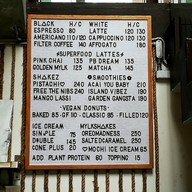 BLACK H/C WHITE H/C
ESPRESSO 80 LATTE 120 130
AMERICANO 110/120 CAPPUCCINO 120 130
FILTER COFFEE 140 AFFOGATO 180
SUPERFOOD LATTES
PINK CHAI 135 PB DREAM 135
GOLDEN MYLK 125 MATCHA 145
SHAKEZ SMOOTHIES
PISTACHIO 240 ACAI YOU BABY 210
FREE THE NIBS 240 ISLAND VIBEZ 180
MANGO LASSI GARDEN GANGSTA 190
VEGAN DONUTS
BAKED 85-OF 110-CLASSIC 85-FILLED 120
ICE CREAM MYLKSHAKES
SINGLE 75 OREOMADNESS 250
DOUBLE 145 SALTEDCARAMEL 250
CONE PLUS 20 MOCHI ICE CREAM 65
ADD PLANT PROTEIN 80 TOPPING 15